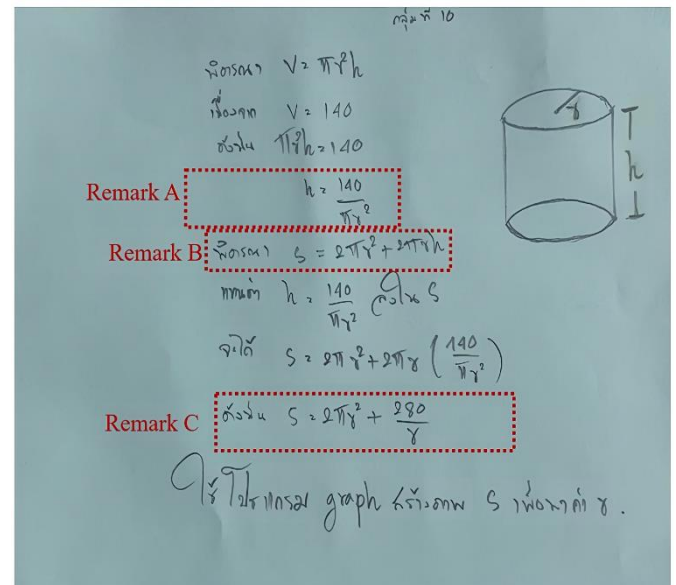 กลุ่มที่ 10
พิจารณา V = πr²h
เนื่องจาก V = 140
ดังนั้น πr²h = 140
Remark A
h = 140/πr²
Remark B
พิจารณา S = 2πr² + 2πrh
แทนค่า h = 140/πr² ลงใน S
จะได้ S = 2πr² + 2πr (140/πr²)
Remark C
ดังนั้น S = 2πr² + 280/r
ใช้โปรแกรม graph สร้างภาพ S เพื่อหาค่า r.
r
h